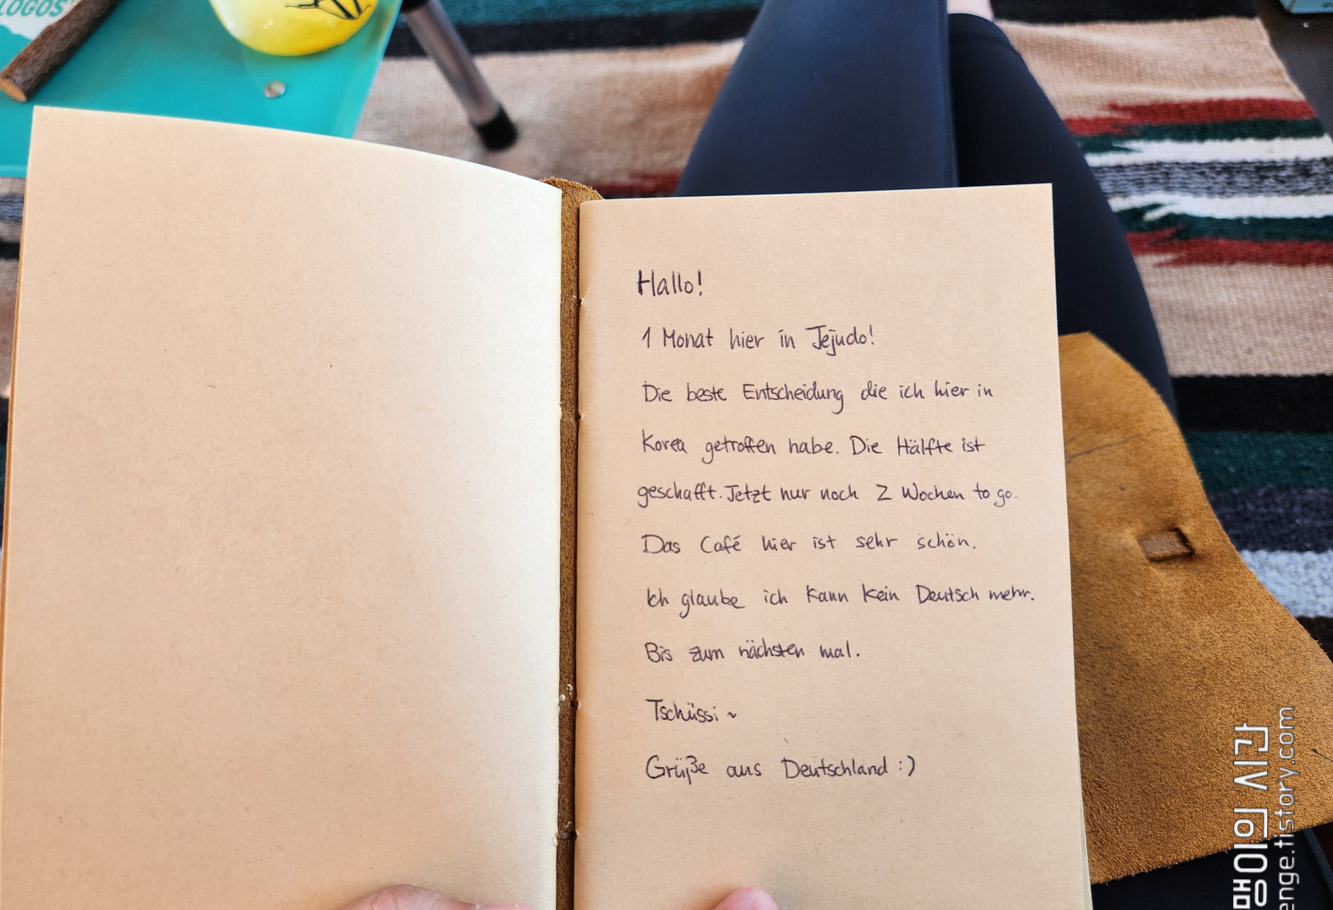 LOGOS
Hallo!
1 Monat hier in Jejudo!
Die beste Entscheidung die ich hier in
Korea getroffen habe. Die Hälfte ist
geschafft. Jetzt nur noch 2 Wochen to go.
Das Café hier ist sehr schön.
Ich glaube ich kann kein Deutsch mehr.
Bis zum nächsten mal.
Tschüssi ~
Grüße aus Deutschland :)
시간
enge.tistory.com